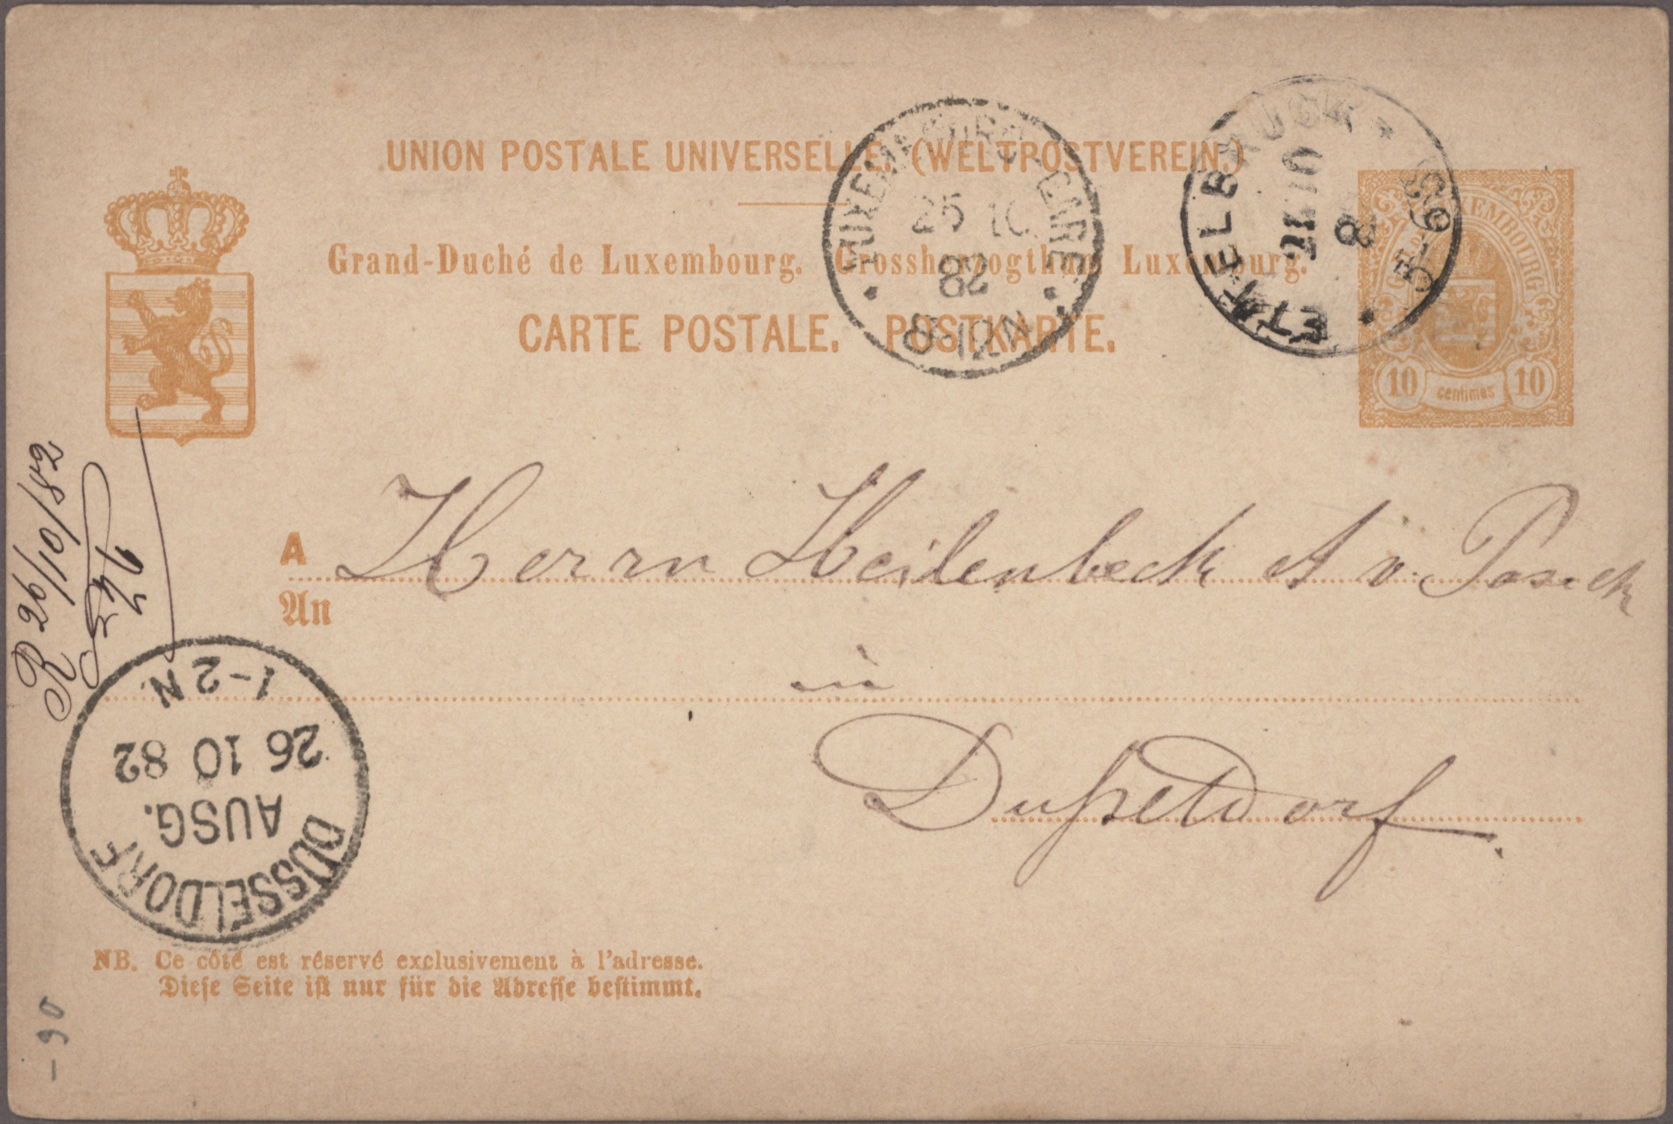 UNION POSTALE UNIVERSELLE. (WELTPOSTVEREIN.)
Grand-Duché de Luxembourg. Grossherzogthum Luxemburg.
CARTE POSTALE. POSTKARTE.
LUXEMBOURG-GARE
25 10
8-12N
ETTELBRUCK
10
5-6S
LUXEMBOURG
10 centimes 10
R 26/10/82
A Herrn Heilenbeck & v.
An
in
Dußeldorf.
DÜSSELDORF
AUSG.
26 10 82
1-2N.
NB. Ce côté est réservé exclusivement à l'adresse.
Diese Seite ist nur für die Adresse bestimmt.
-90